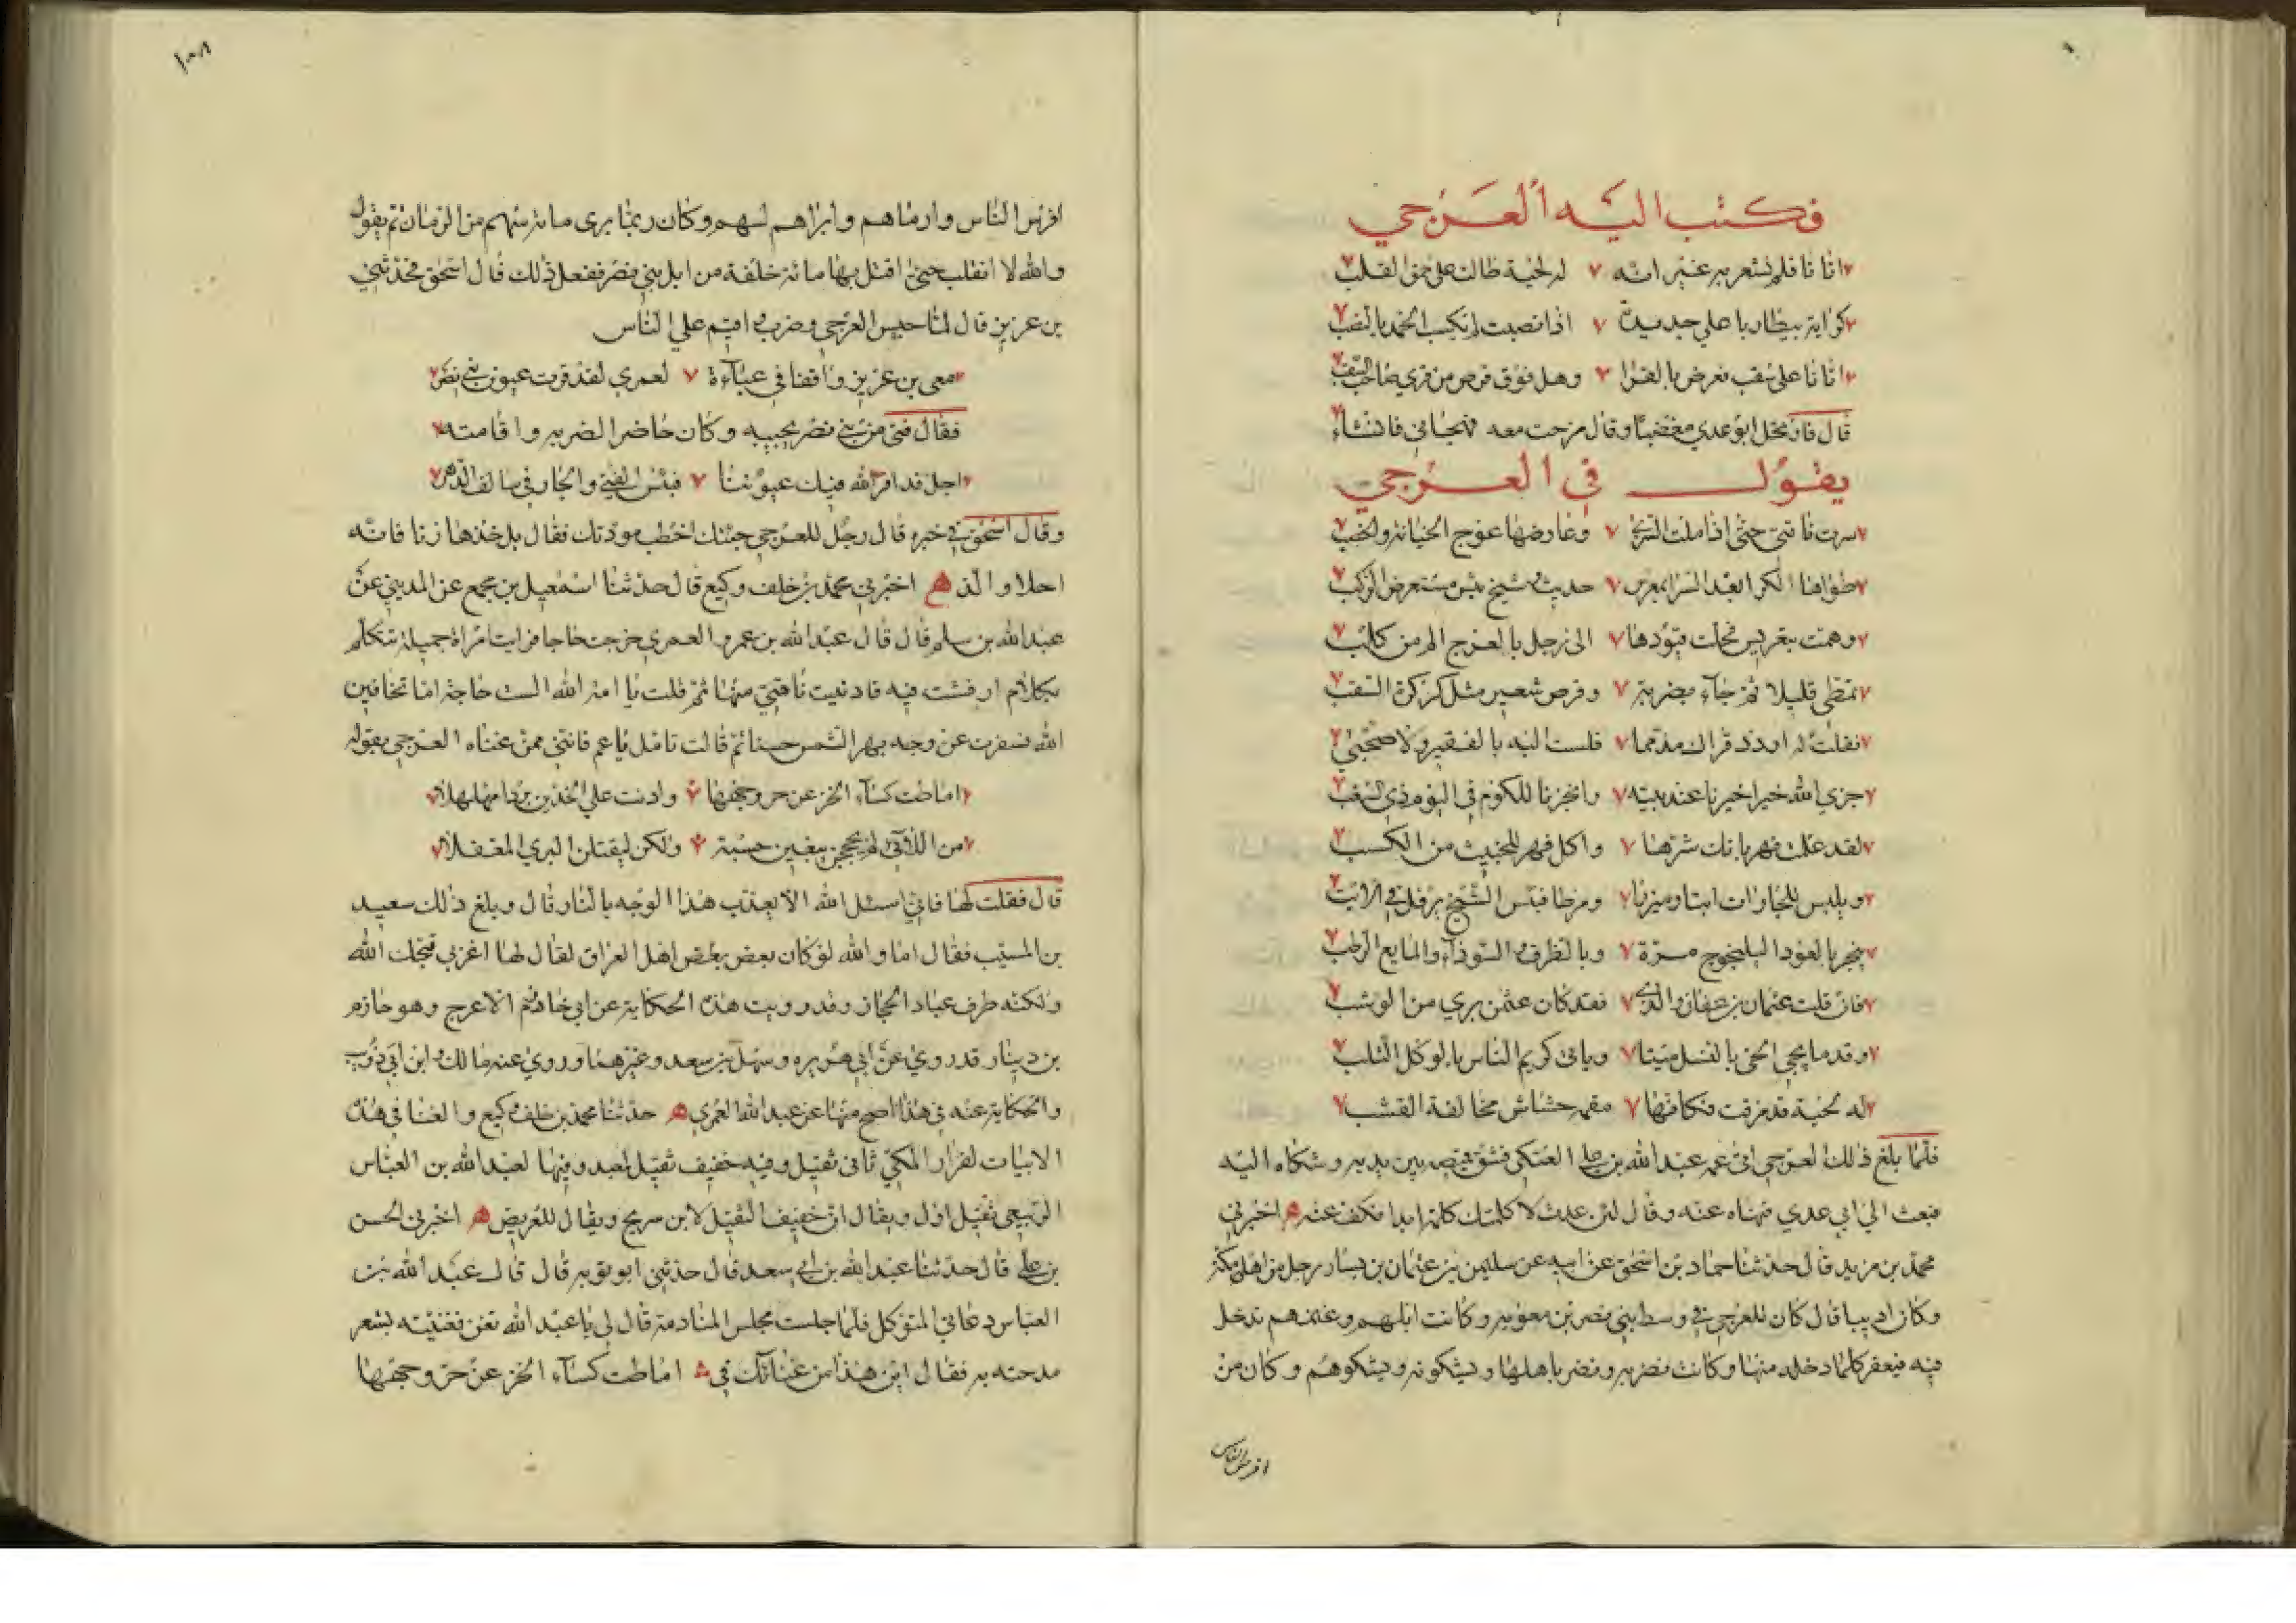 فكتب اليه العرجي
اتانا فلم نشعر به غير انه له لحية طالت على حمق القلب
كراية بيطار باعلي حديدة اذا نصبت لم تكسب الحمد بالنصب
اتانا على سغب نعرض بالقرا وهل فوق قرص من قري صاحب السغب
قال فارتحل ابو عدي مغضبا وقال مزحت معه فهجاني فانشاء
يقول في العرجي
سرت ناقتي حتى اذا ملت السري وعارضها عوج
طواها الكرا بعد السرا بمعرس حديث شيخ بئس مستعرض الركب
وهمت بتعريس فحلت قيودها الى رجل بالعرج الم من كلب
تمطى قليلا ثم جاء بصربة وقرص شعير مثل كركرة السقب
فقلت له اردد قراك مذمما فلست اليه بالفقير ولا صحبي
جزي الله خيرا خيرنا عند بيته وانحرنا للكوم في اليوم ذي السغب
لقد علمت فهر بانك شرها واكل فهر للخبيث من الكسب
ويلبس للجارات اتبا وميزرا ومرطا فبئس الشيخ يرفل في الاتب
يبخر بالعود اليلنجوج مرة وبالظرف السوداء والمايع الرطب
فان قلت عثمان بن عفان والدي فقد كان عثمن بري من الوشب
وقد ما يجي الحي بالنسل ميتا وياتي كريم الناس بالوكل الثلب
له لحية قد مزقت فكانها مقمة حشاش مخالفة القشب
فلما بلغ ذلك العرجي اتى عمه عبد الله بن علي العبكي فشق قميصه بين يديه وشكاه اليه
فبعث الي ابي عدي فنهاه عنه وقال لئن عدت لا كلمتك كلمة ابدا فكف عنه اخبرني
محمد بن مزيد قال حدثنا حماد بن اسحق عن ابيه عن سليمن بن عثمان بن يسار رجل من اهل مكة
وكان اديبا قال كان للعرجي في وسط بني نصر بن معوية وكانت ابلهم وغنمهم تدخل
فيه فيعقر كلما دخله منها وكانت تضر به ويضر باهلها ويشكونه ويشكوهم وكان من
افرس الناس
افرس الناس وارماهم وابراهم لسهم وكان ربما برى مائة سهم من الرمان ثم يقول
والله لا انقلب حتى اقتل بها مائة خلفة من ابل بني نصر ففعل ذلك قال اسحق فحدثني
بن عزيز قال لما حبس العرجي وضرب واقيم علي الناس
معي بن عزيز واقفا في عباءة لعمري لقد قرت عيون بني نصر
فقال فتى من بني نصر يجيبه وكان حاضرا لضربه واقامته
اجل قد اقر الله فيك عيوننا فبئس الفتى والجار في سالف الدهر
وقال اسحق في خبره قال رجل للعرجي جئتك اخطب مودتك فقال بل خذها زنا فانه
احلا والذ اخبرني محمد بن خلف وكيع قال حدثنا اسمعيل بن مجمع عن المديني عن
عبد الله بن سلم قال قال عبد الله بن عمرو العمري خرجت حاجا فرايت امراة جميلة تتكلم
بكلام ارفثت فيه فادنيت ناقتي منها ثم قلت يا امة الله الست حاجة اما تخافين
الله فسفرت عن وجه يبهر الشمس حسنا ثم قالت تامل يا عم فانني ممن عناه العرجي بقوله
اماطت كساء الخز عن حر وجهها وادنت علي الخدين بردا مهلهلا
من اللائي لم يحججن يبغين حسبة ولكن ليقتلن البري المغفلا
قال فقلت لها فاني اسئل الله الا يعذب هذا الوجه بالنار قال وبلغ ذلك سعيد
بن المسيب فقال اما والله لو كان بعض بعض اهل العراق لقال لها اغربي قبحك الله
ولكنه ظرف عباد الحجاز وقد رويت هذه الحكاية عن ابي حازم الاعرج وهو حازم
بن دينار قد روي عن ابي هريره وسهل بن سعد وغيرهما وروي عنه مالك وابن ابي ذوب
والحكاية عنه في هذا اصح منها عن عبد الله العمري حدثنا محمد بن خلف وكيع والغنا في هذه
الابيات لفرار المكي ثاني ثقيل وفيه خفيف ثقيل لمعبد وفيها لعبد الله بن العباس
الربيعي ثقيل اول ويقال ان خفيف الثقيل لابن سريج ويقال للغريض اخبرني الحسن
بن علي قال حدثنا عبد الله بن ابي سعد قال حدثني ابو توبه قال قال عبد الله بن
العباس دعاني المتوكل فلما جلست مجلس المنادمة قال لي يا عبد الله تغن فغنيته بشعر
مدحته به فقال اين هذا من غنائك في اماطت كساء الخز عن حر وجهها